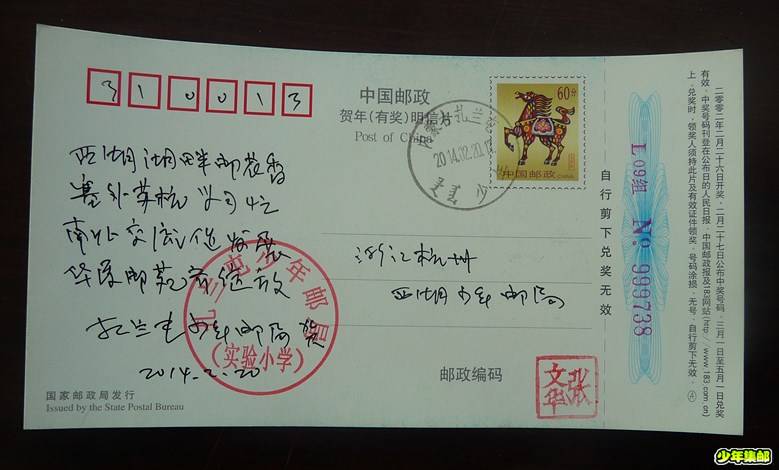 310013
中国邮政
贺年(有奖)明信片
Post of China
60分
中国邮政 CHINA
内蒙古扎兰屯
2014.02.20.12
西湖湖畔邮花香
塞外苏杭
南北交流促发展
华夏邮苑
扎兰屯少年邮局贺
2014.2.20
扎兰屯少年邮局
(实验小学)
浙江杭州
西湖少年邮局
邮政编码
张文华
国家邮政局发行
Issued by the State Postal Bureau
自行剪下兑奖无效
L09组 No. 999738
二〇〇二年二月二十六日开奖,二月二十七日公布中奖号码。三月一日至五月一日兑奖
有效。中奖号码刊登在公布日的人民日报、中国邮政报及183网站(http://www.183.com.cn)
上。兑奖时,领奖人须持此片及有效证件领奖。号码涂损、无号、自行剪下无效。Ⓐ
少年集邮